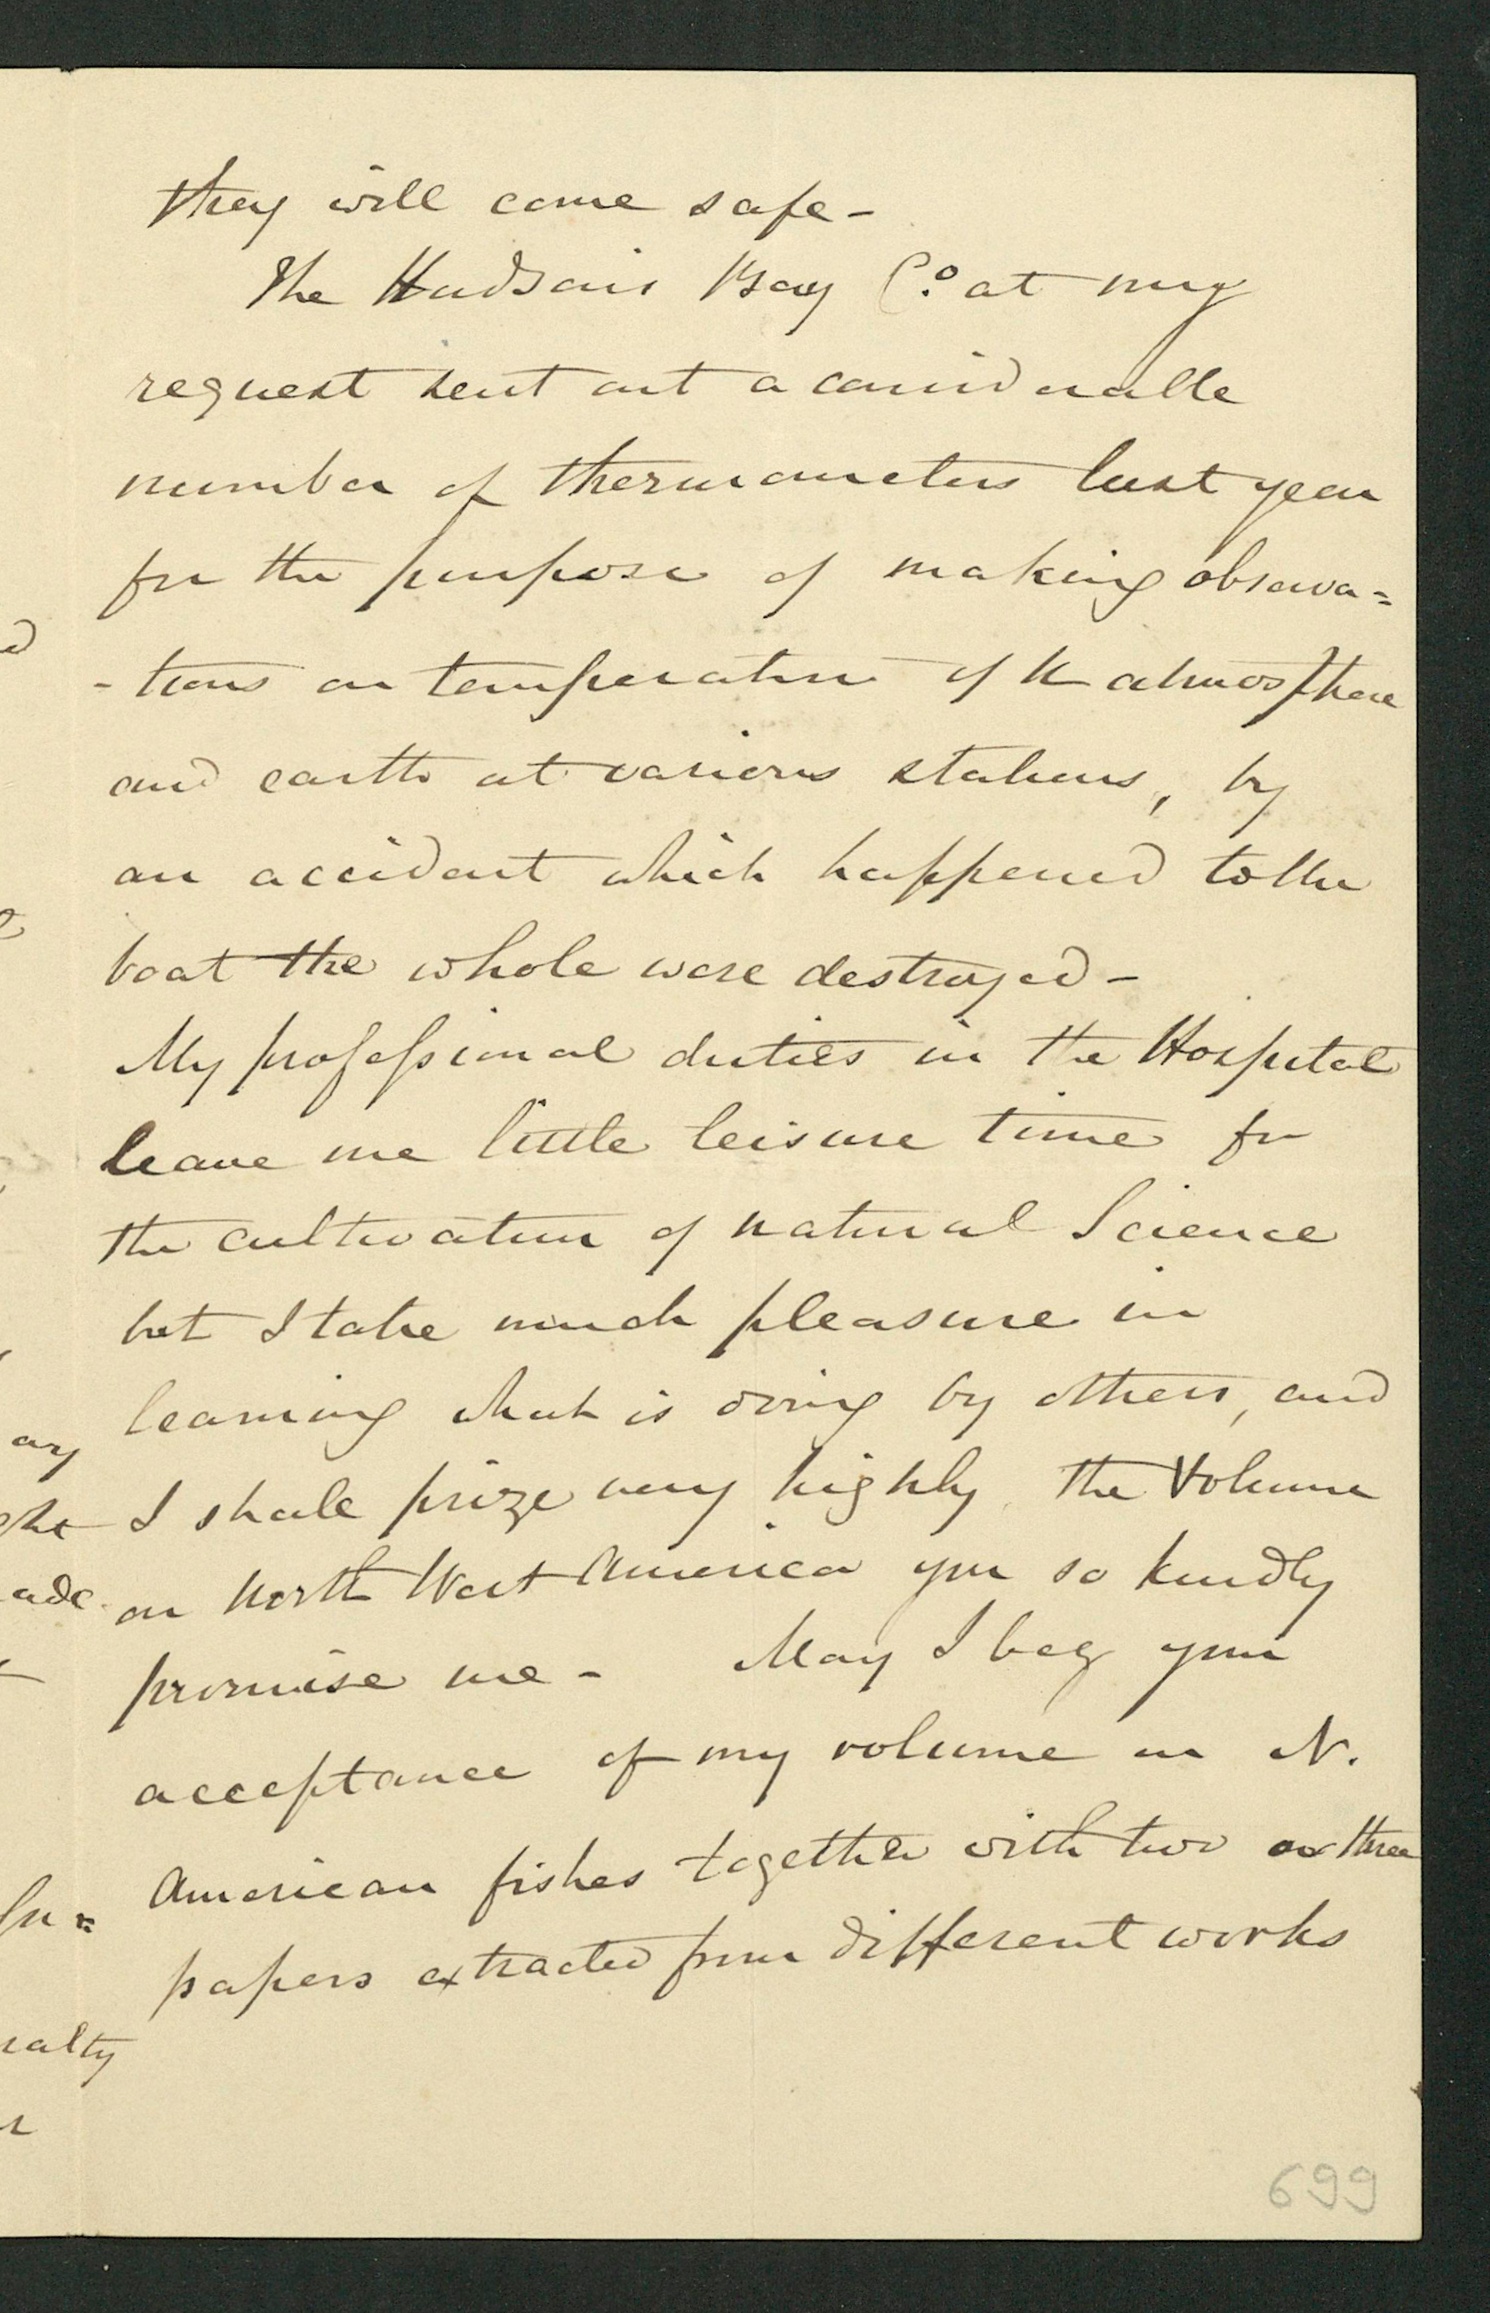 they will come safe -
The Hudsons Bay Co. at my
request sent out a considerable
number of thermometers last year
for the purpose of making observa=
-tions on temperature of the atmosphere
and earth at various stations, by
an accident which happened to the
boat the whole were destroyed -
My professional duties in the Hospital
leave me little leisure time for
the cultivation of natural Science
but I take much pleasure in
learning what is doing by others, and
I shall prize very highly the Volume
on North West America you so kindly
promise me - May I beg your
acceptance of my volume on N.
American fishes together with two or three
papers extracted from different works
699